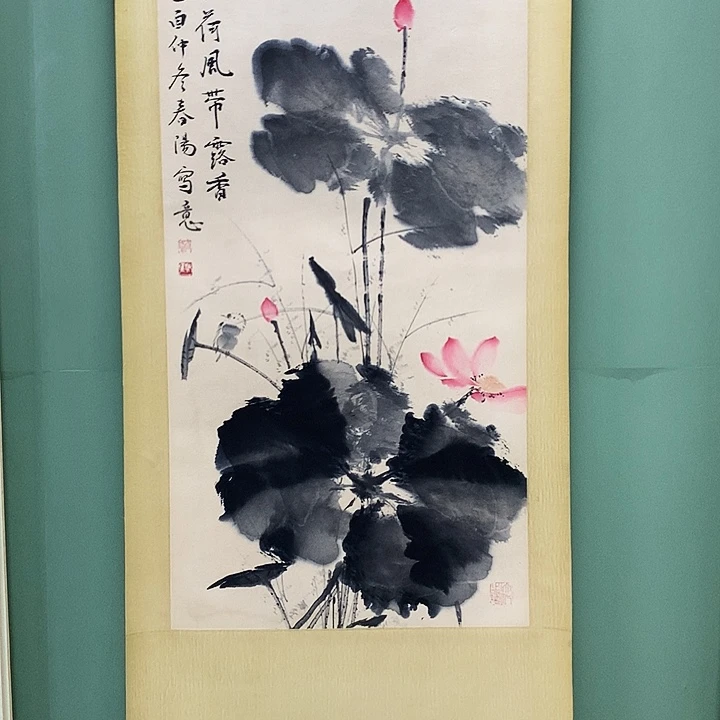 荷風帶露香
酉仲冬春湯寫意